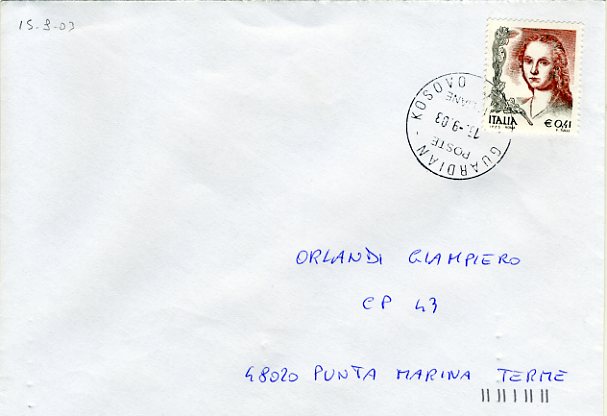 15-9-03
ITALIA € 0,41
GUARDIAN - KOSOVO
POSTE
15-9.03
ORLANDI GIAMPIERO
CP 43
48020 PUNTA MARINA TERME